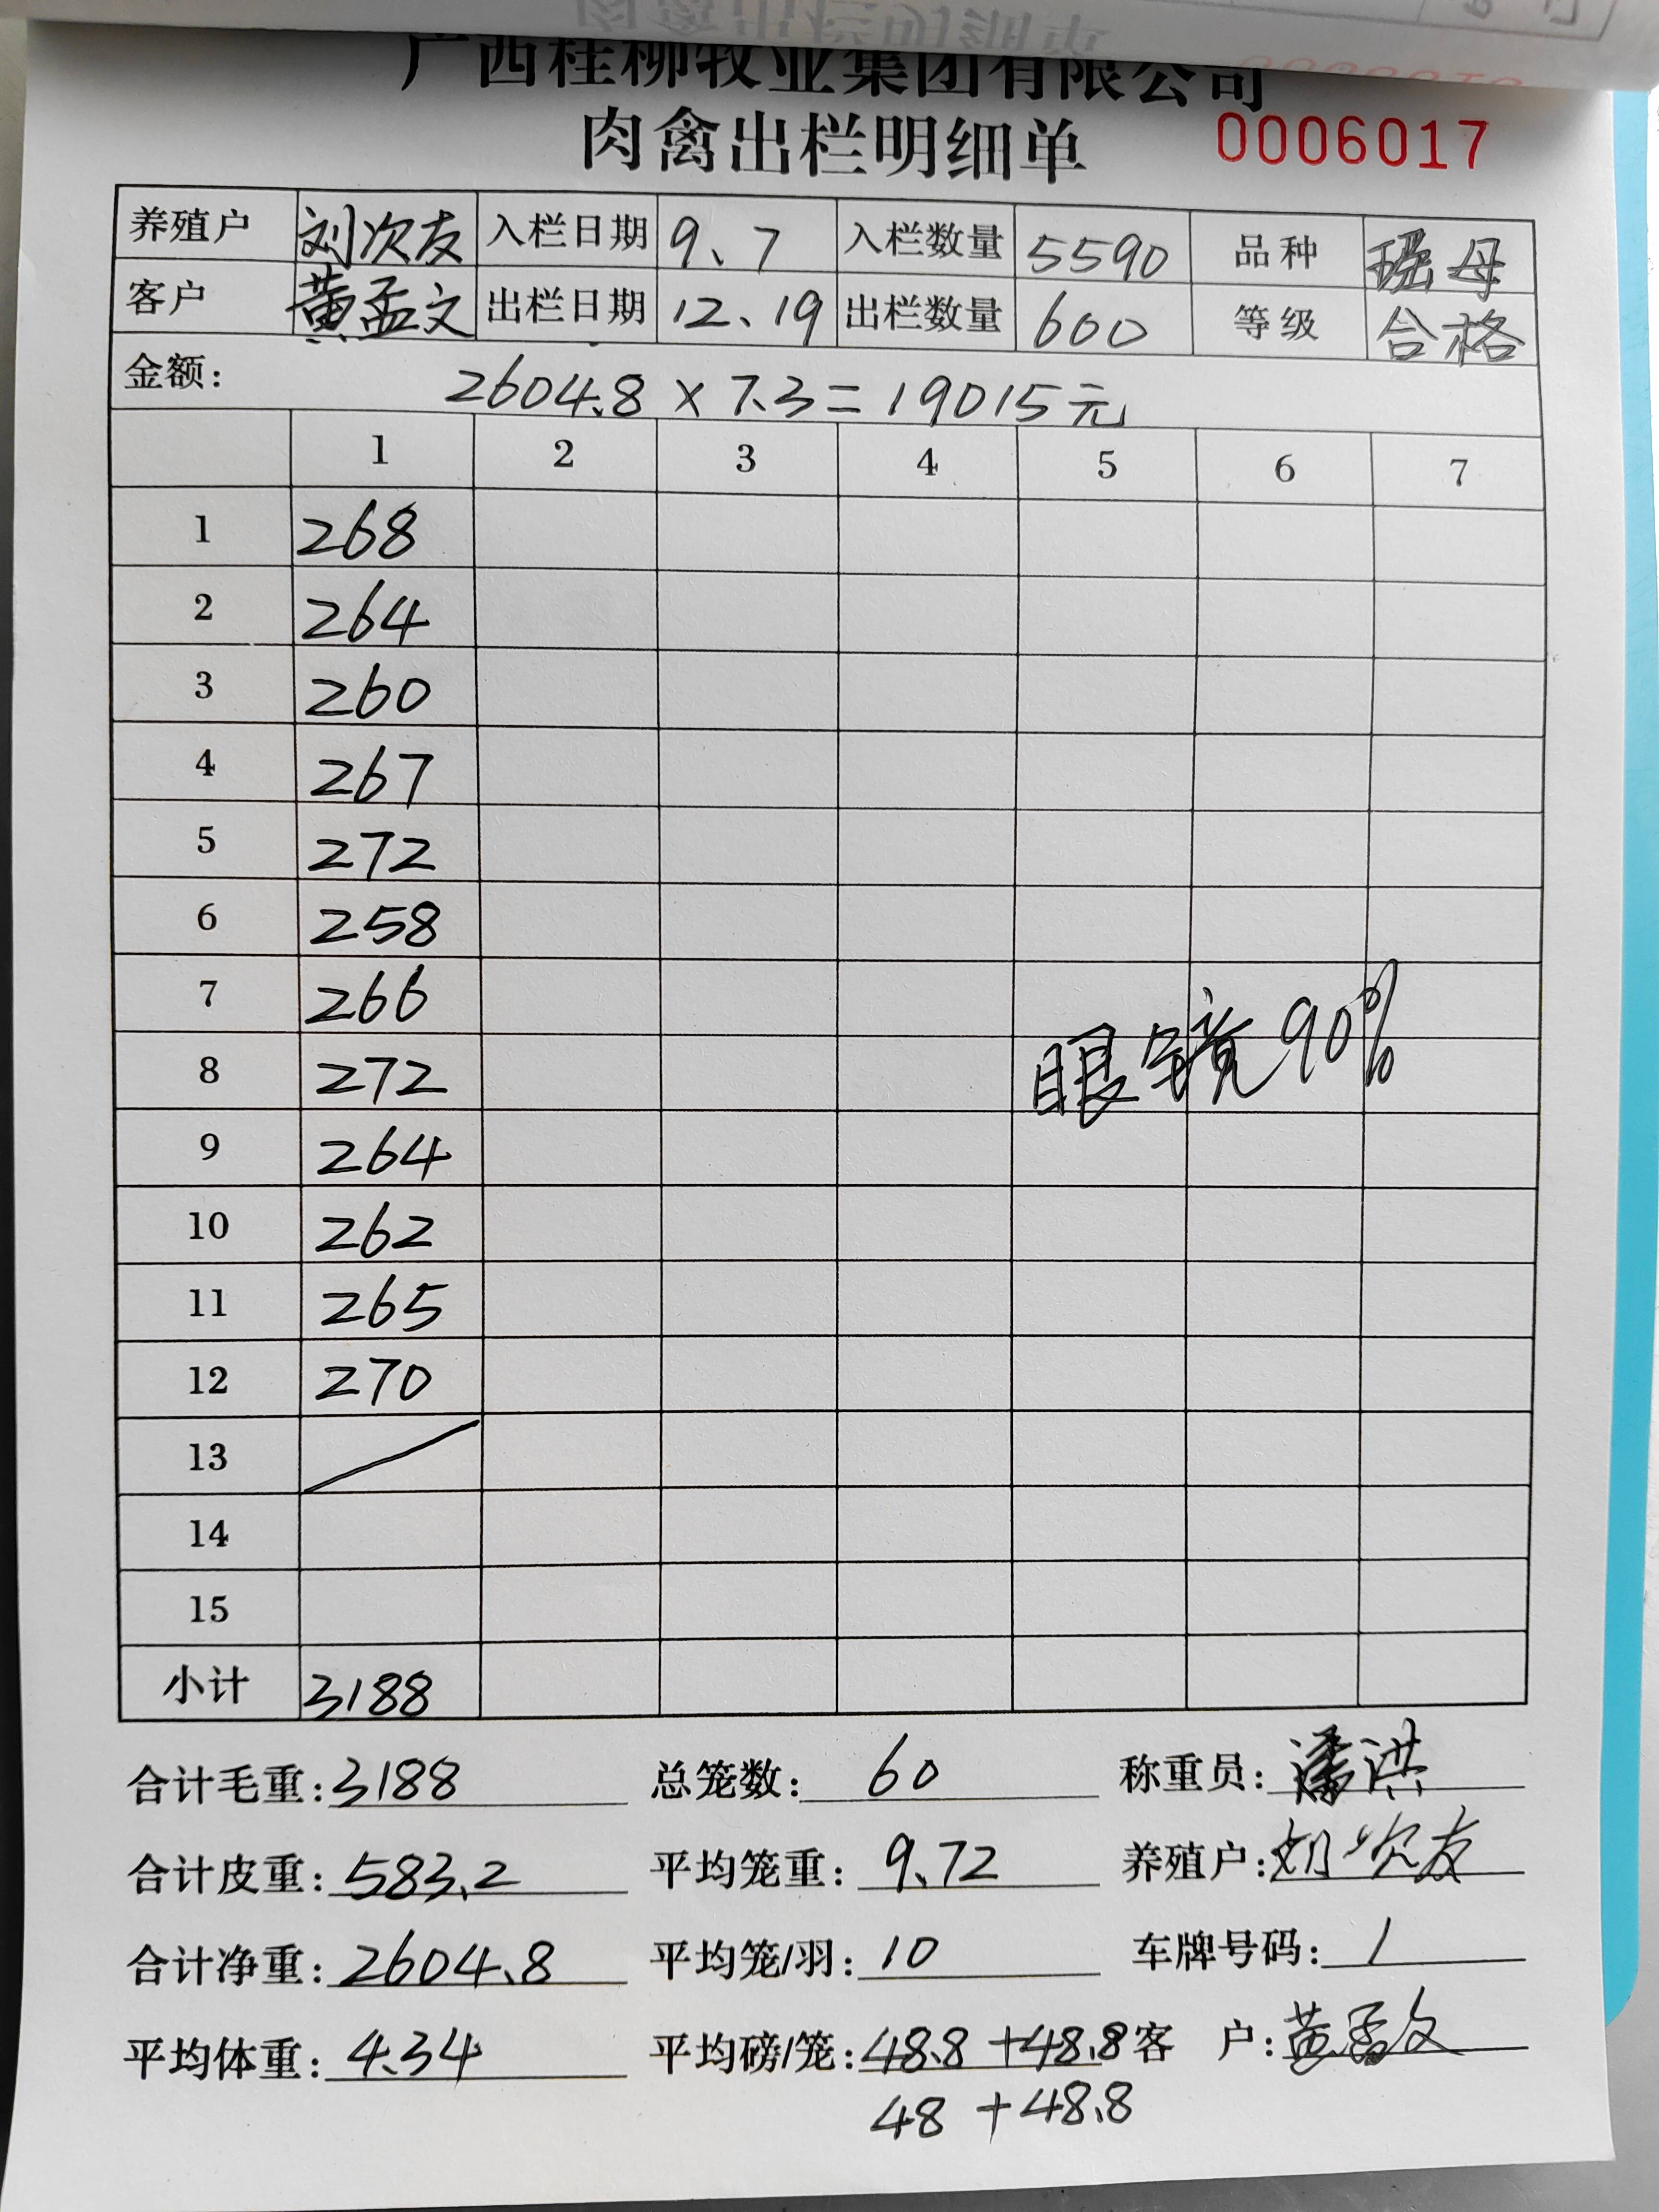 广西桂柳牧业集团有限公司
肉禽出栏明细单 0006017
养殖户 刘次友 入栏日期 9.7 入栏数量 5590 品种 瑶母
客户 黄孟文 出栏日期 12.19 出栏数量 600 等级 合格
金额: 2604.8 × 7.3 = 19015元
1 2 3 4 5 6 7
1 268
2 264
3 260
4 267
5 272
6 258
7 266
8 272 眼镜90%
9 264
10 262
11 265
12 270
13
14
15
小计 3188
合计毛重: 3188 总笼数: 60 称重员: 潘洪
合计皮重: 583.2 平均笼重: 9.72 养殖户: 刘次友
合计净重: 2604.8 平均笼/羽: 10 车牌号码: /
平均体重: 4.34 平均磅/笼: 48.8 +48.8 客 户: 黄孟文
48 +48.8